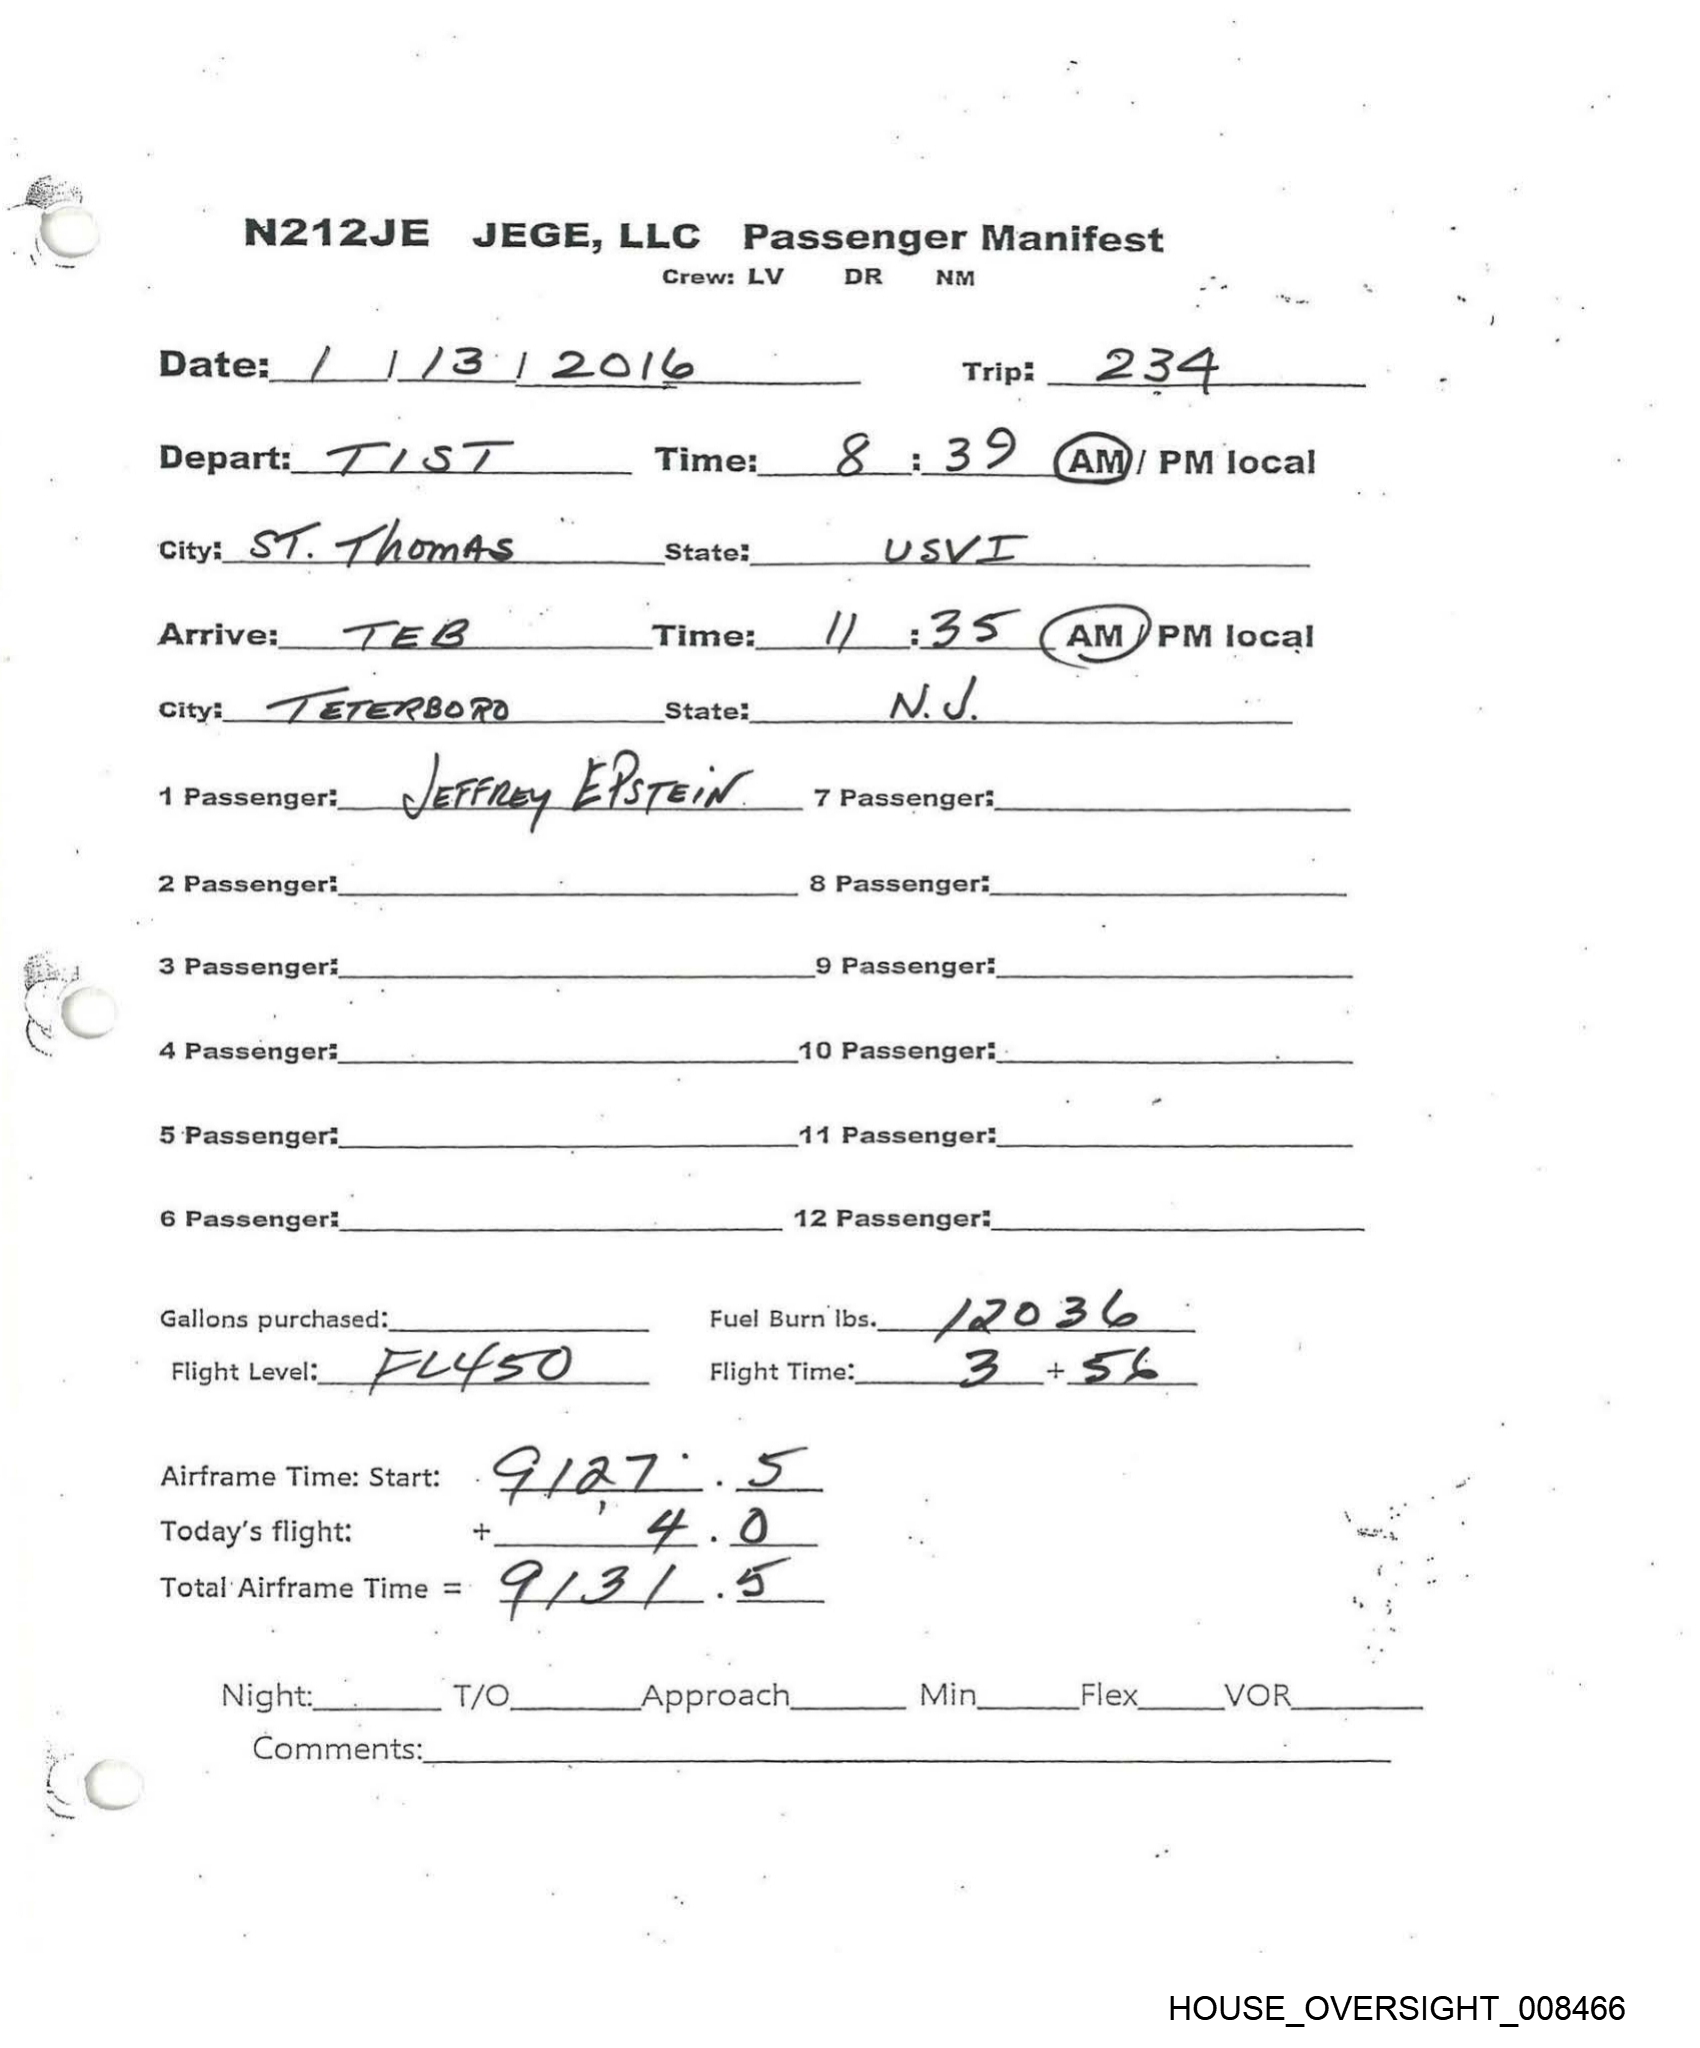 N212JE JEGE, LLC Passenger Manifest
Crew: LV DR NM
Date: 1 / 13 / 2016 Trip: 234
Depart: TIST Time: 8 : 39 AM / PM local
City: ST. THOMAS State: USVI
Arrive: TEB Time: 11 : 35 AM / PM local
City: TETERBORO State: N.J.
1 Passenger: JEFFREY EPSTEIN 7 Passenger:
2 Passenger: 8 Passenger:
3 Passenger: 9 Passenger:
4 Passenger: 10 Passenger:
5 Passenger: 11 Passenger:
6 Passenger: 12 Passenger:
Gallons purchased: Fuel Burn lbs. 12036
Flight Level: FL450 Flight Time: 3 + 56
Airframe Time: Start: 9127 . 5
Today's flight: + 4 . 0
Total Airframe Time = 9131 . 5
Night: T/O Approach Min Flex VOR
Comments:
HOUSE_OVERSIGHT_008466